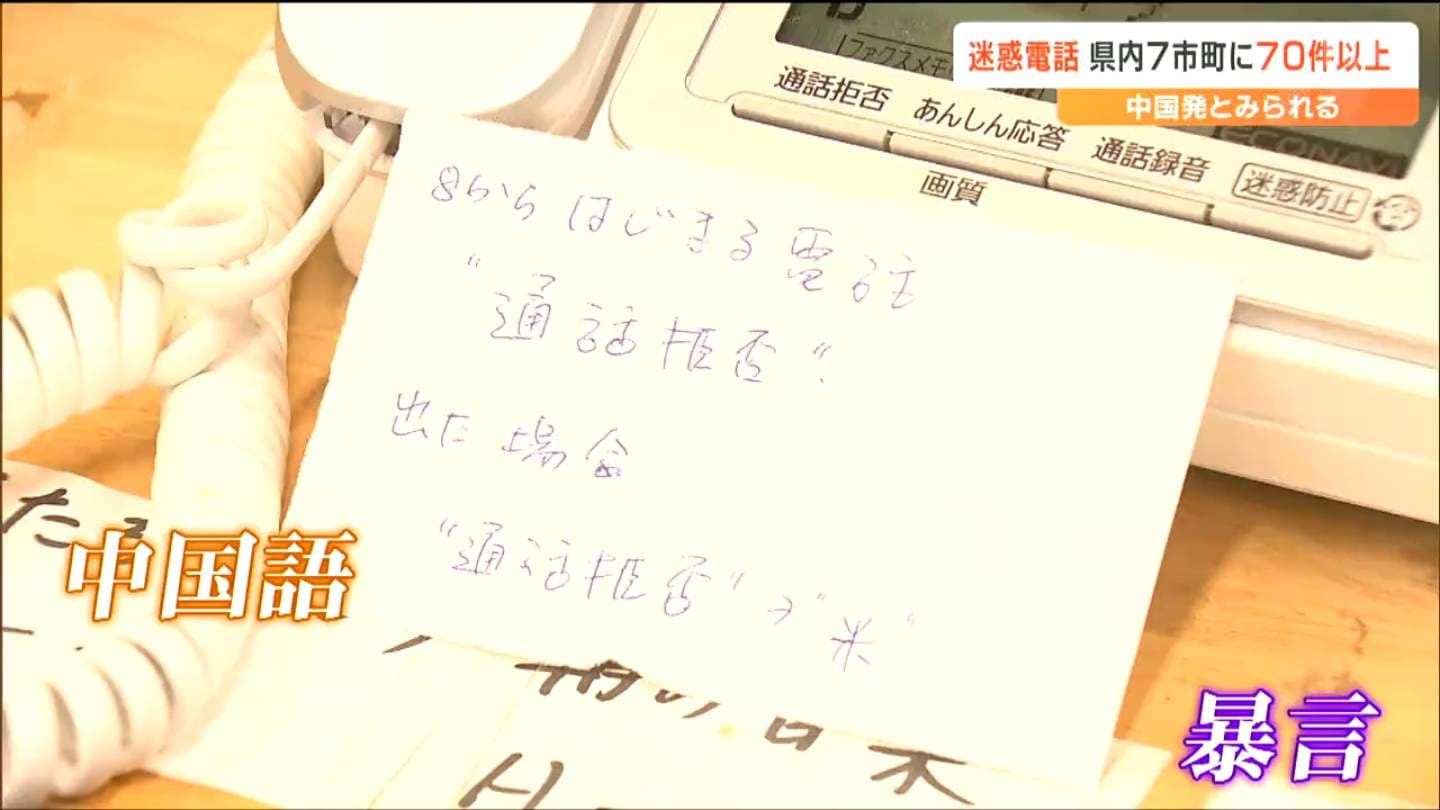 迷惑電話 県内7市町に70件以上
中国発とみられる
ファクスメモ
通話拒否 あんしん応答 通話録音 迷惑防止
画質
ECONAVI
8からはじまる電話
"通話拒否"
出た場合
"通話拒否"→"米"
中国語
暴言